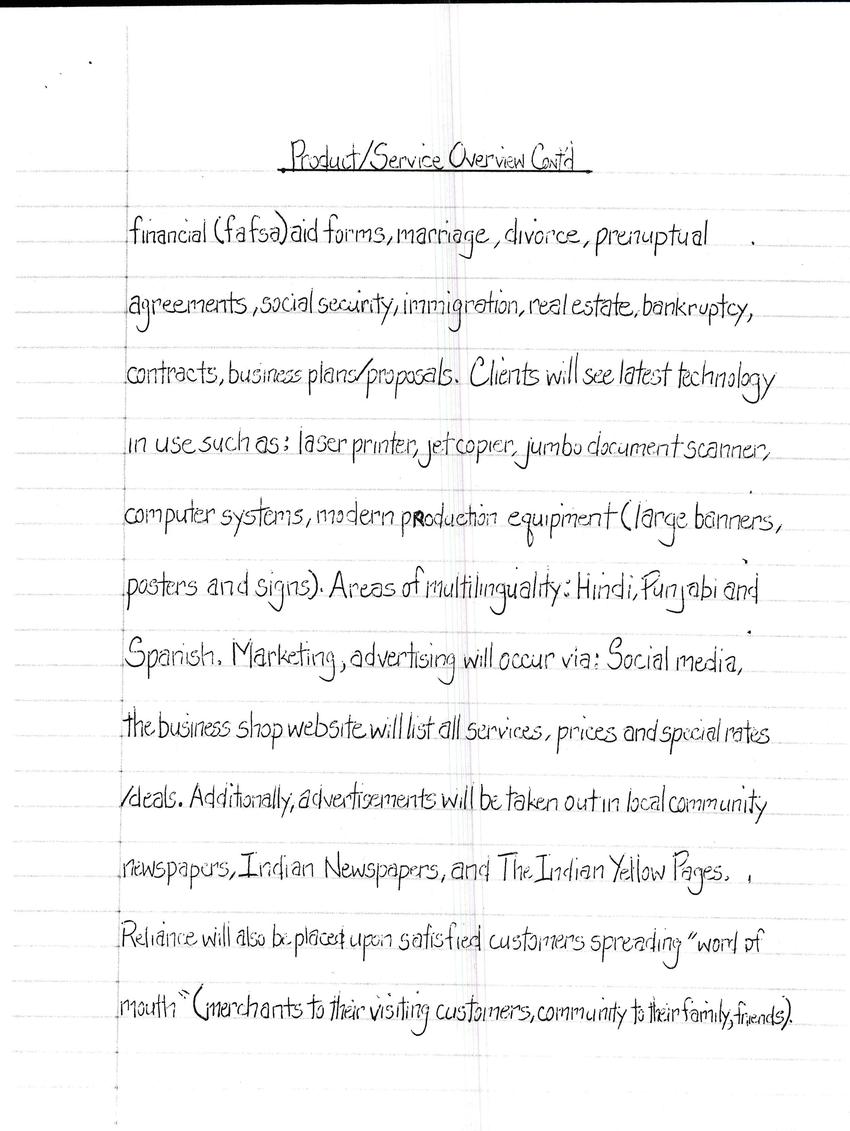 Product/Service Overview Cont'd
financial (fafsa) aid forms, marriage, divorce, prenuptual
agreements, social security, immigration, real estate, bankruptcy,
contracts, business plans/proposals. Clients will see latest technology
in use such as: laser printer, jet copier, jumbo document scanner,
computer systems, modern production equipment (large banners,
posters and signs). Areas of multilinguality: Hindi, Punjabi and
Spanish. Marketing, advertising will occur via: Social media,
the business shop website will list all services, prices and special rates
/deals. Additionally, advertisements will be taken out in local community
newspapers, Indian Newspapers, and The Indian Yellow Pages.
Reliance will also be placed upon satisfied customers spreading "word of
mouth" (merchants to their visiting customers, community to their family, friends).